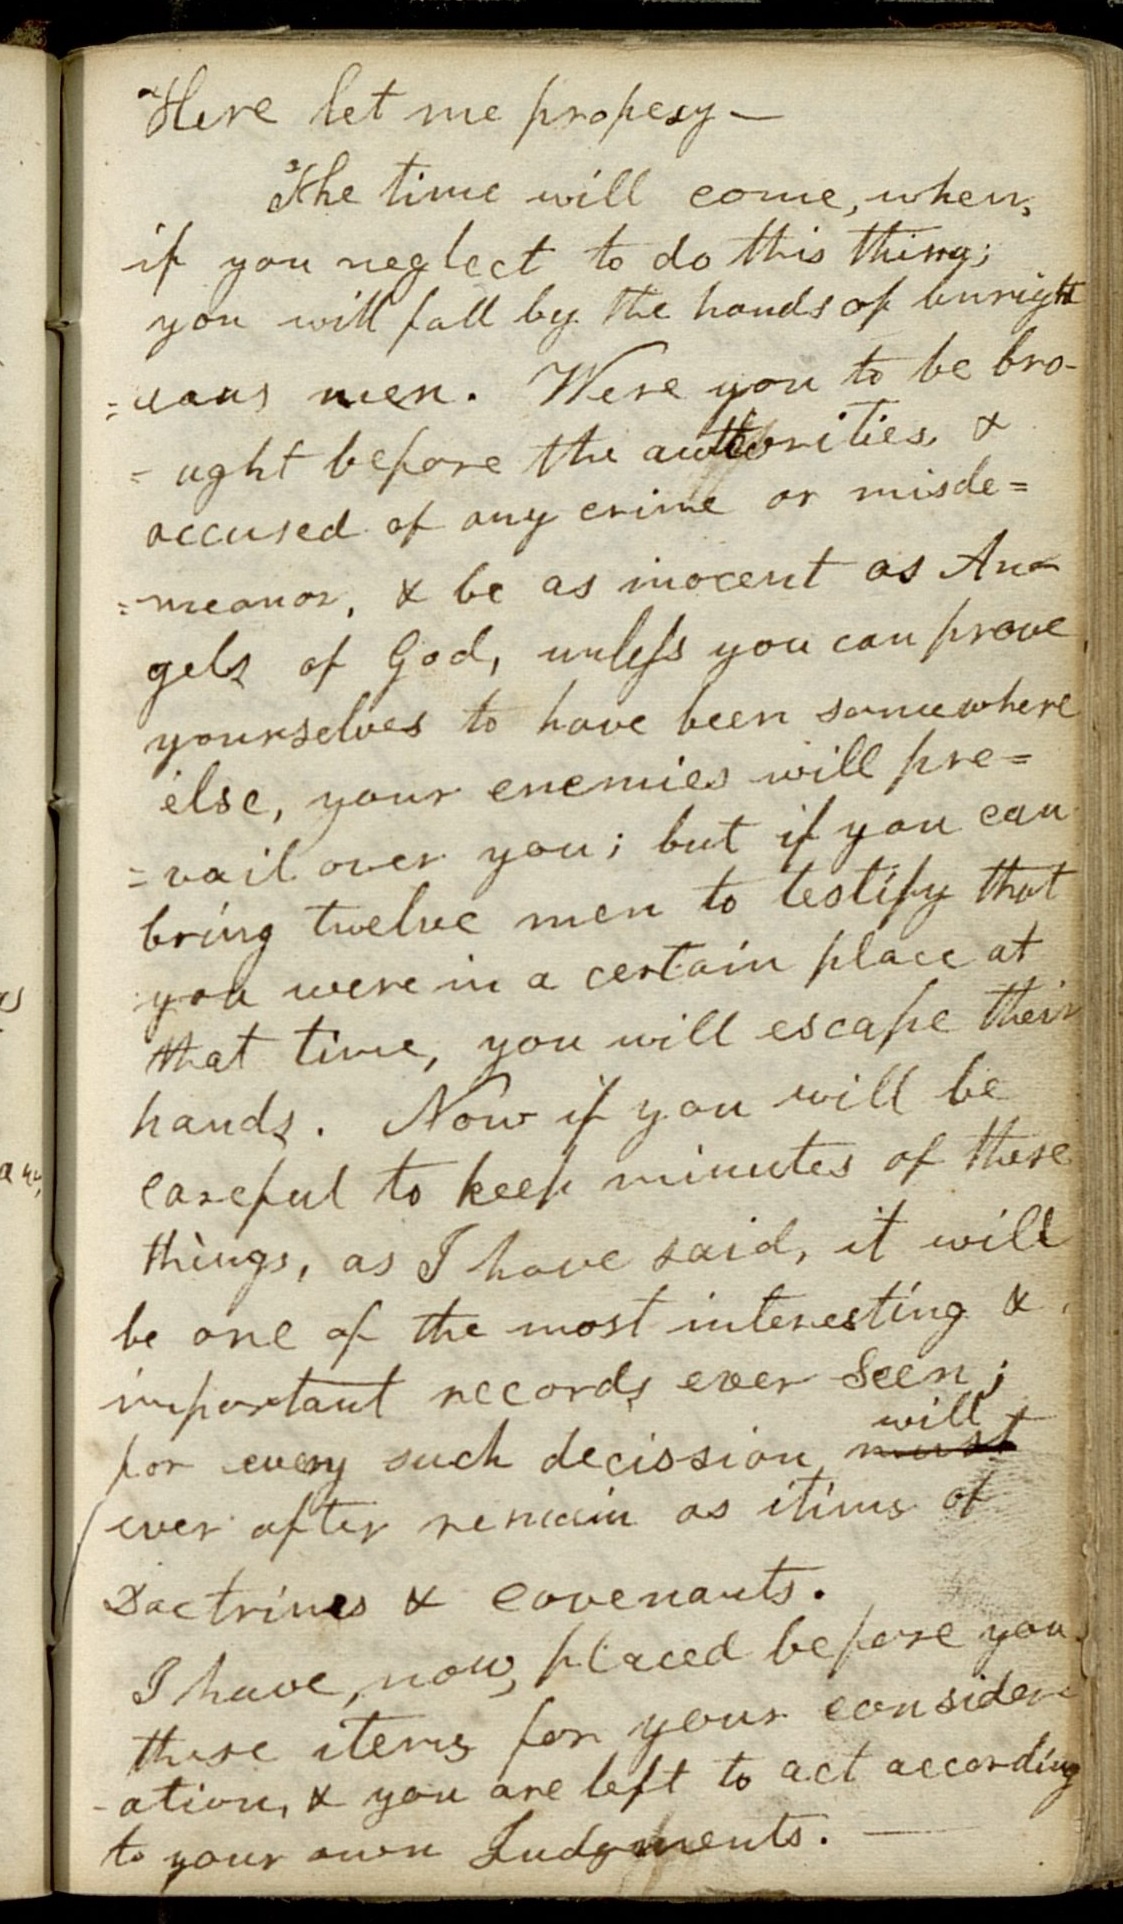 Here let me propesy—
The time will come, when,
if you neglect to do this thing;
you will fall by the hands of unright
=eous men. Were you to be bro-
-ught before the authorities &
accused of any crime or misde=
=meanor, & be as inocent as An=
gels of God, unless you can prove
yourselves to have been somewhere
else, your enemies will pre=
=vail over you; but if you can
bring twelve men to testify that
you were in a certain place at
that time, you will escape their
hands. Now if you will be
careful to keep minutes of these
things, as I have said, it will
be one of the most interesting &
important records ever seen;
will
for every such decission must
ever after remain as itims of
Doctrines & Covenants.
I have, now, placed before you
these items for your consider
-ation, & you are left to act according
to your own Judgments. —